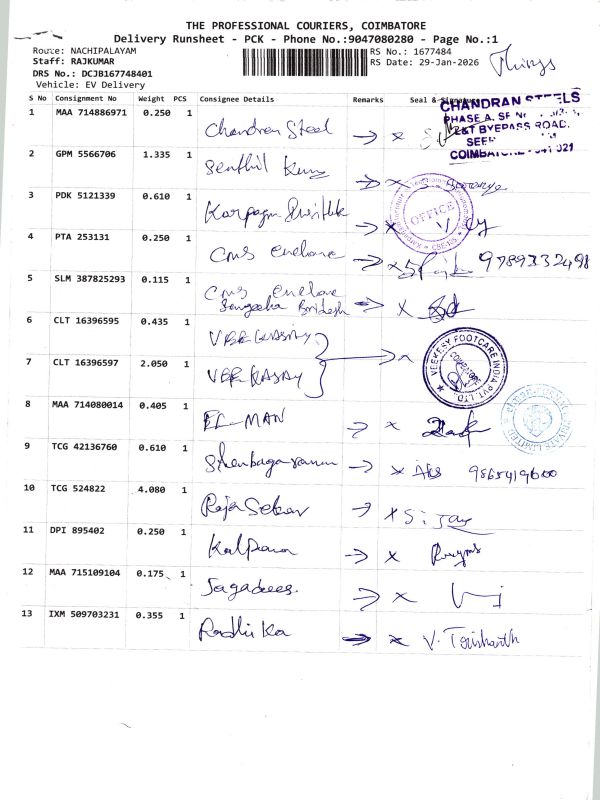 THE PROFESSIONAL COURIERS, COIMBATORE
Delivery Runsheet - PCK - Phone No.:9047080280 - Page No.:1
Route: NACHIPALAYAM
RS No.: 1677484
Staff: RAJKUMAR
RS Date: 29-Jan-2026
DRS No.: DCJB167748401
Vehicle: EV Delivery
S No Consignment No Weight PCS Consignee Details Remarks Seal & Signature
CHANDRAN STEELS
PHASE A, SF No
BYEPASS ROAD,
COIMBATORE - 641 021
1 MAA 714886971 0.250 1 Chandran Steel → x
2 GPM 5566706 1.335 1 Senthil → x
3 PDK 5121339 0.610 1 Karpagam → x
OFFICE
4 PTA 253131 0.250 1 Cms enclave → x 9789332498
5 SLM 387825293 0.115 1 Cms enclave → x
6 CLT 16396595 0.435 1 VEEKASAY → x
VEEKESY FOOTCARE INDIA PVT. LTD.
COIMBATORE
7 CLT 16396597 2.050 1 VEEKASAY
8 MAA 714080014 0.405 1 EL-MAN → x
PRIVATE LIMITED
9 TCG 42136760 0.610 1 Shenbagaramam → x
10 TCG 524822 4.080 1 Raja Sekar → x
11 DPI 895402 0.250 1 Kalpana → x
12 MAA 715109104 0.175 1 Jagadees → x
13 IXM 509703231 0.355 1 Radhika → x V.